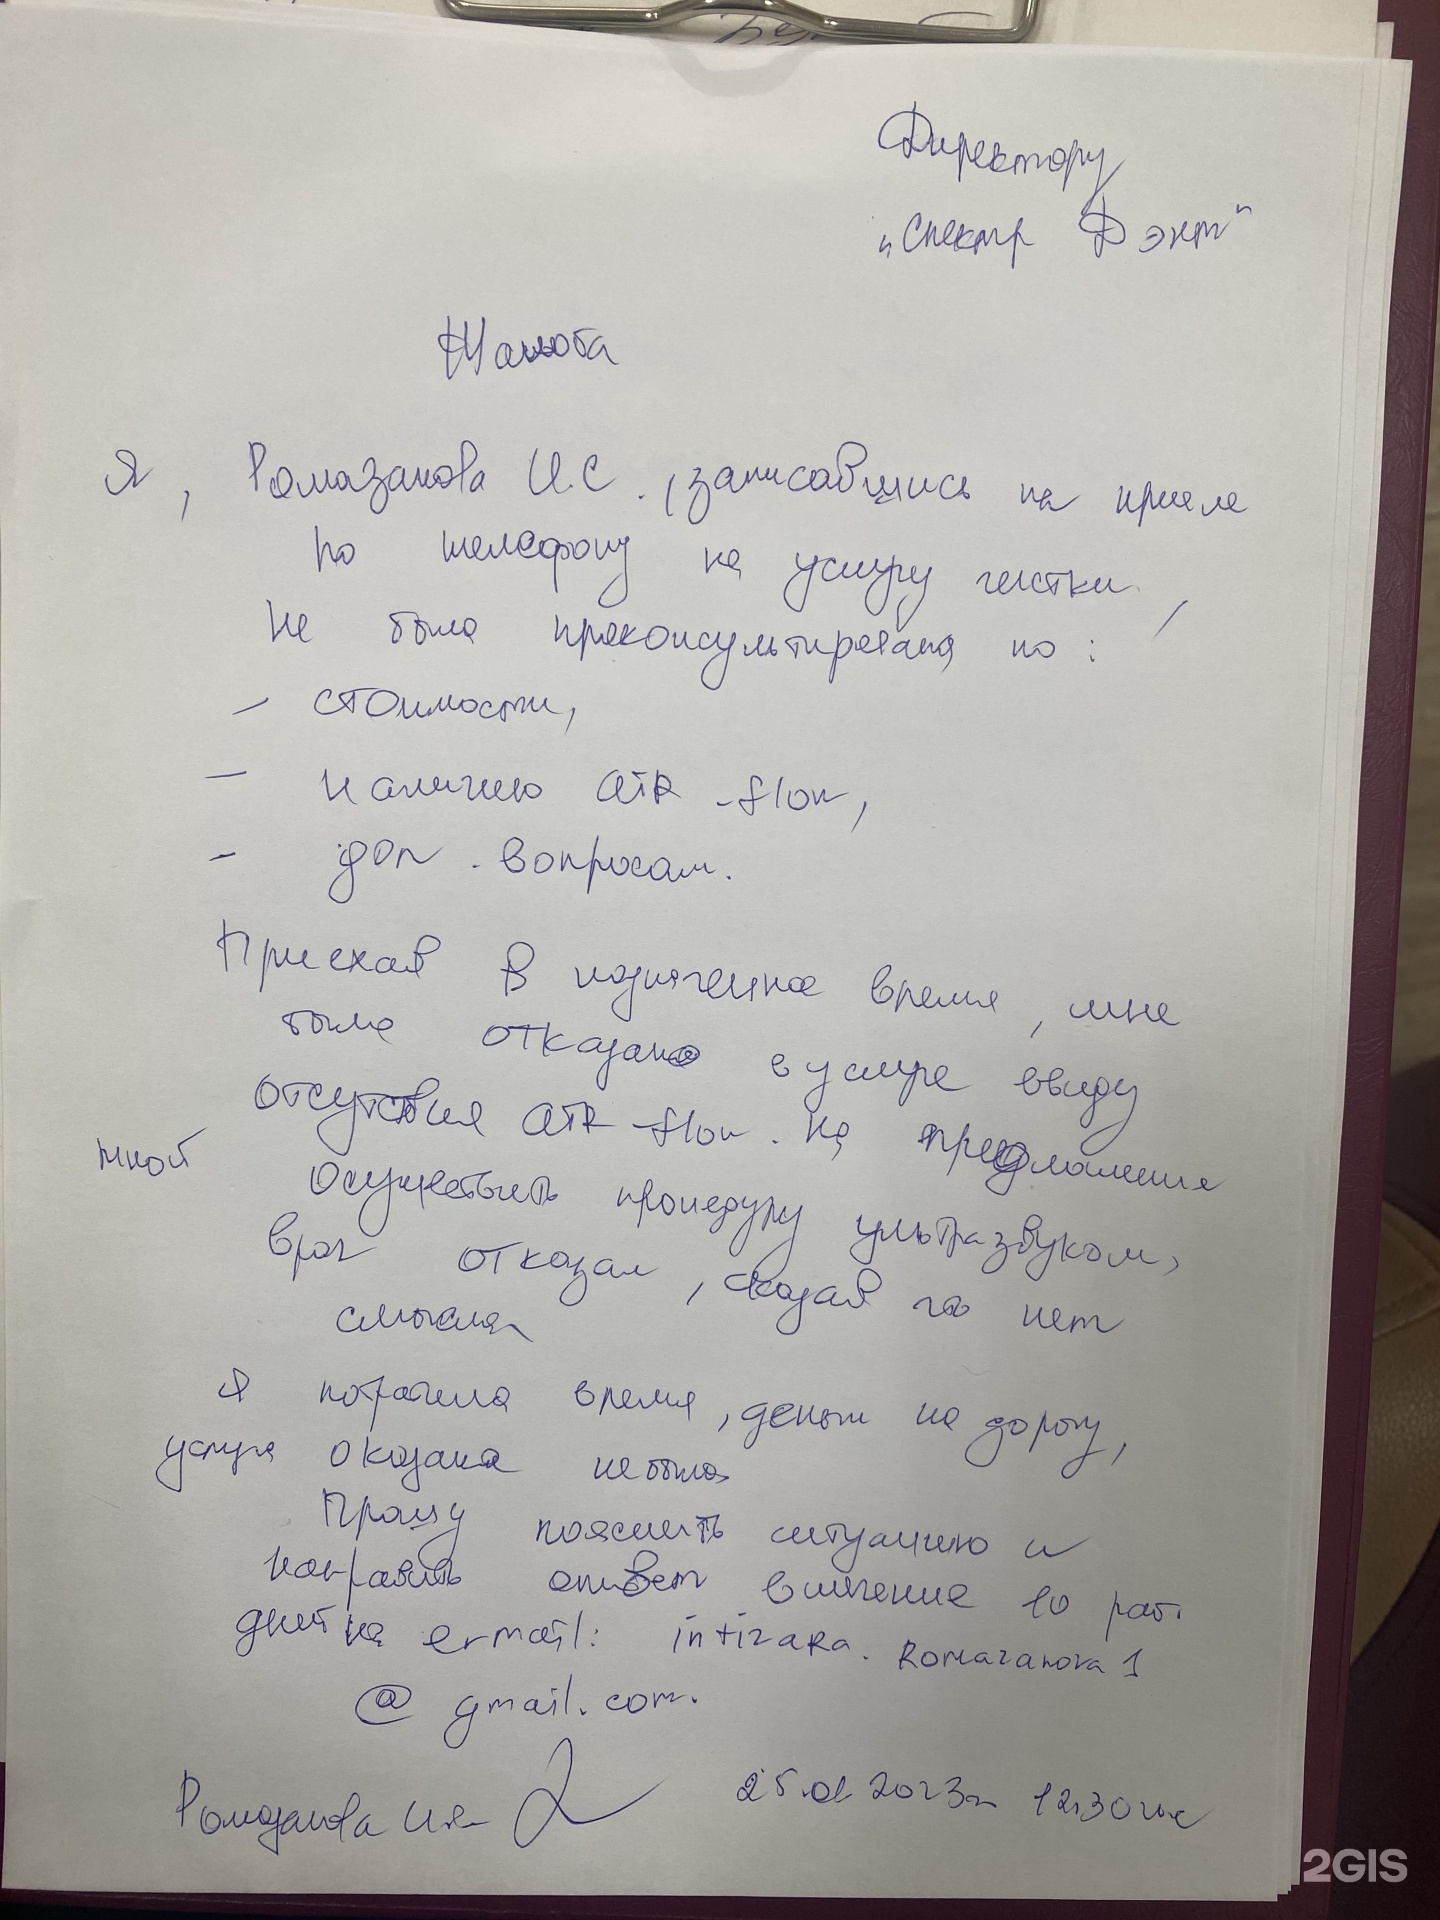 Директору
"Спектр Дэнт"
Жалоба
Я, Рамазанова И.С., записавшись на прием
по телефону на услугу чистки,
не была проконсультирована по:
- стоимости,
- наличию AIR-flow,
- доп. вопросам.
Приехав в назначенное время, мне
было отказано в услуге ввиду
отсутствия AIR-flow. На предложение
мной осуществить процедуру ультразвуком,
врач отказал, сказав что нет
смысла
Я потратила время, деньги на дорогу,
услуга оказана не была
Прошу пояснить ситуацию и
направить ответ в течение 10 раб.
дней на e-mail: intizara.Romazanova1
@gmail.com.
Рамазанова 25.01.2023г 12:30
2GIS